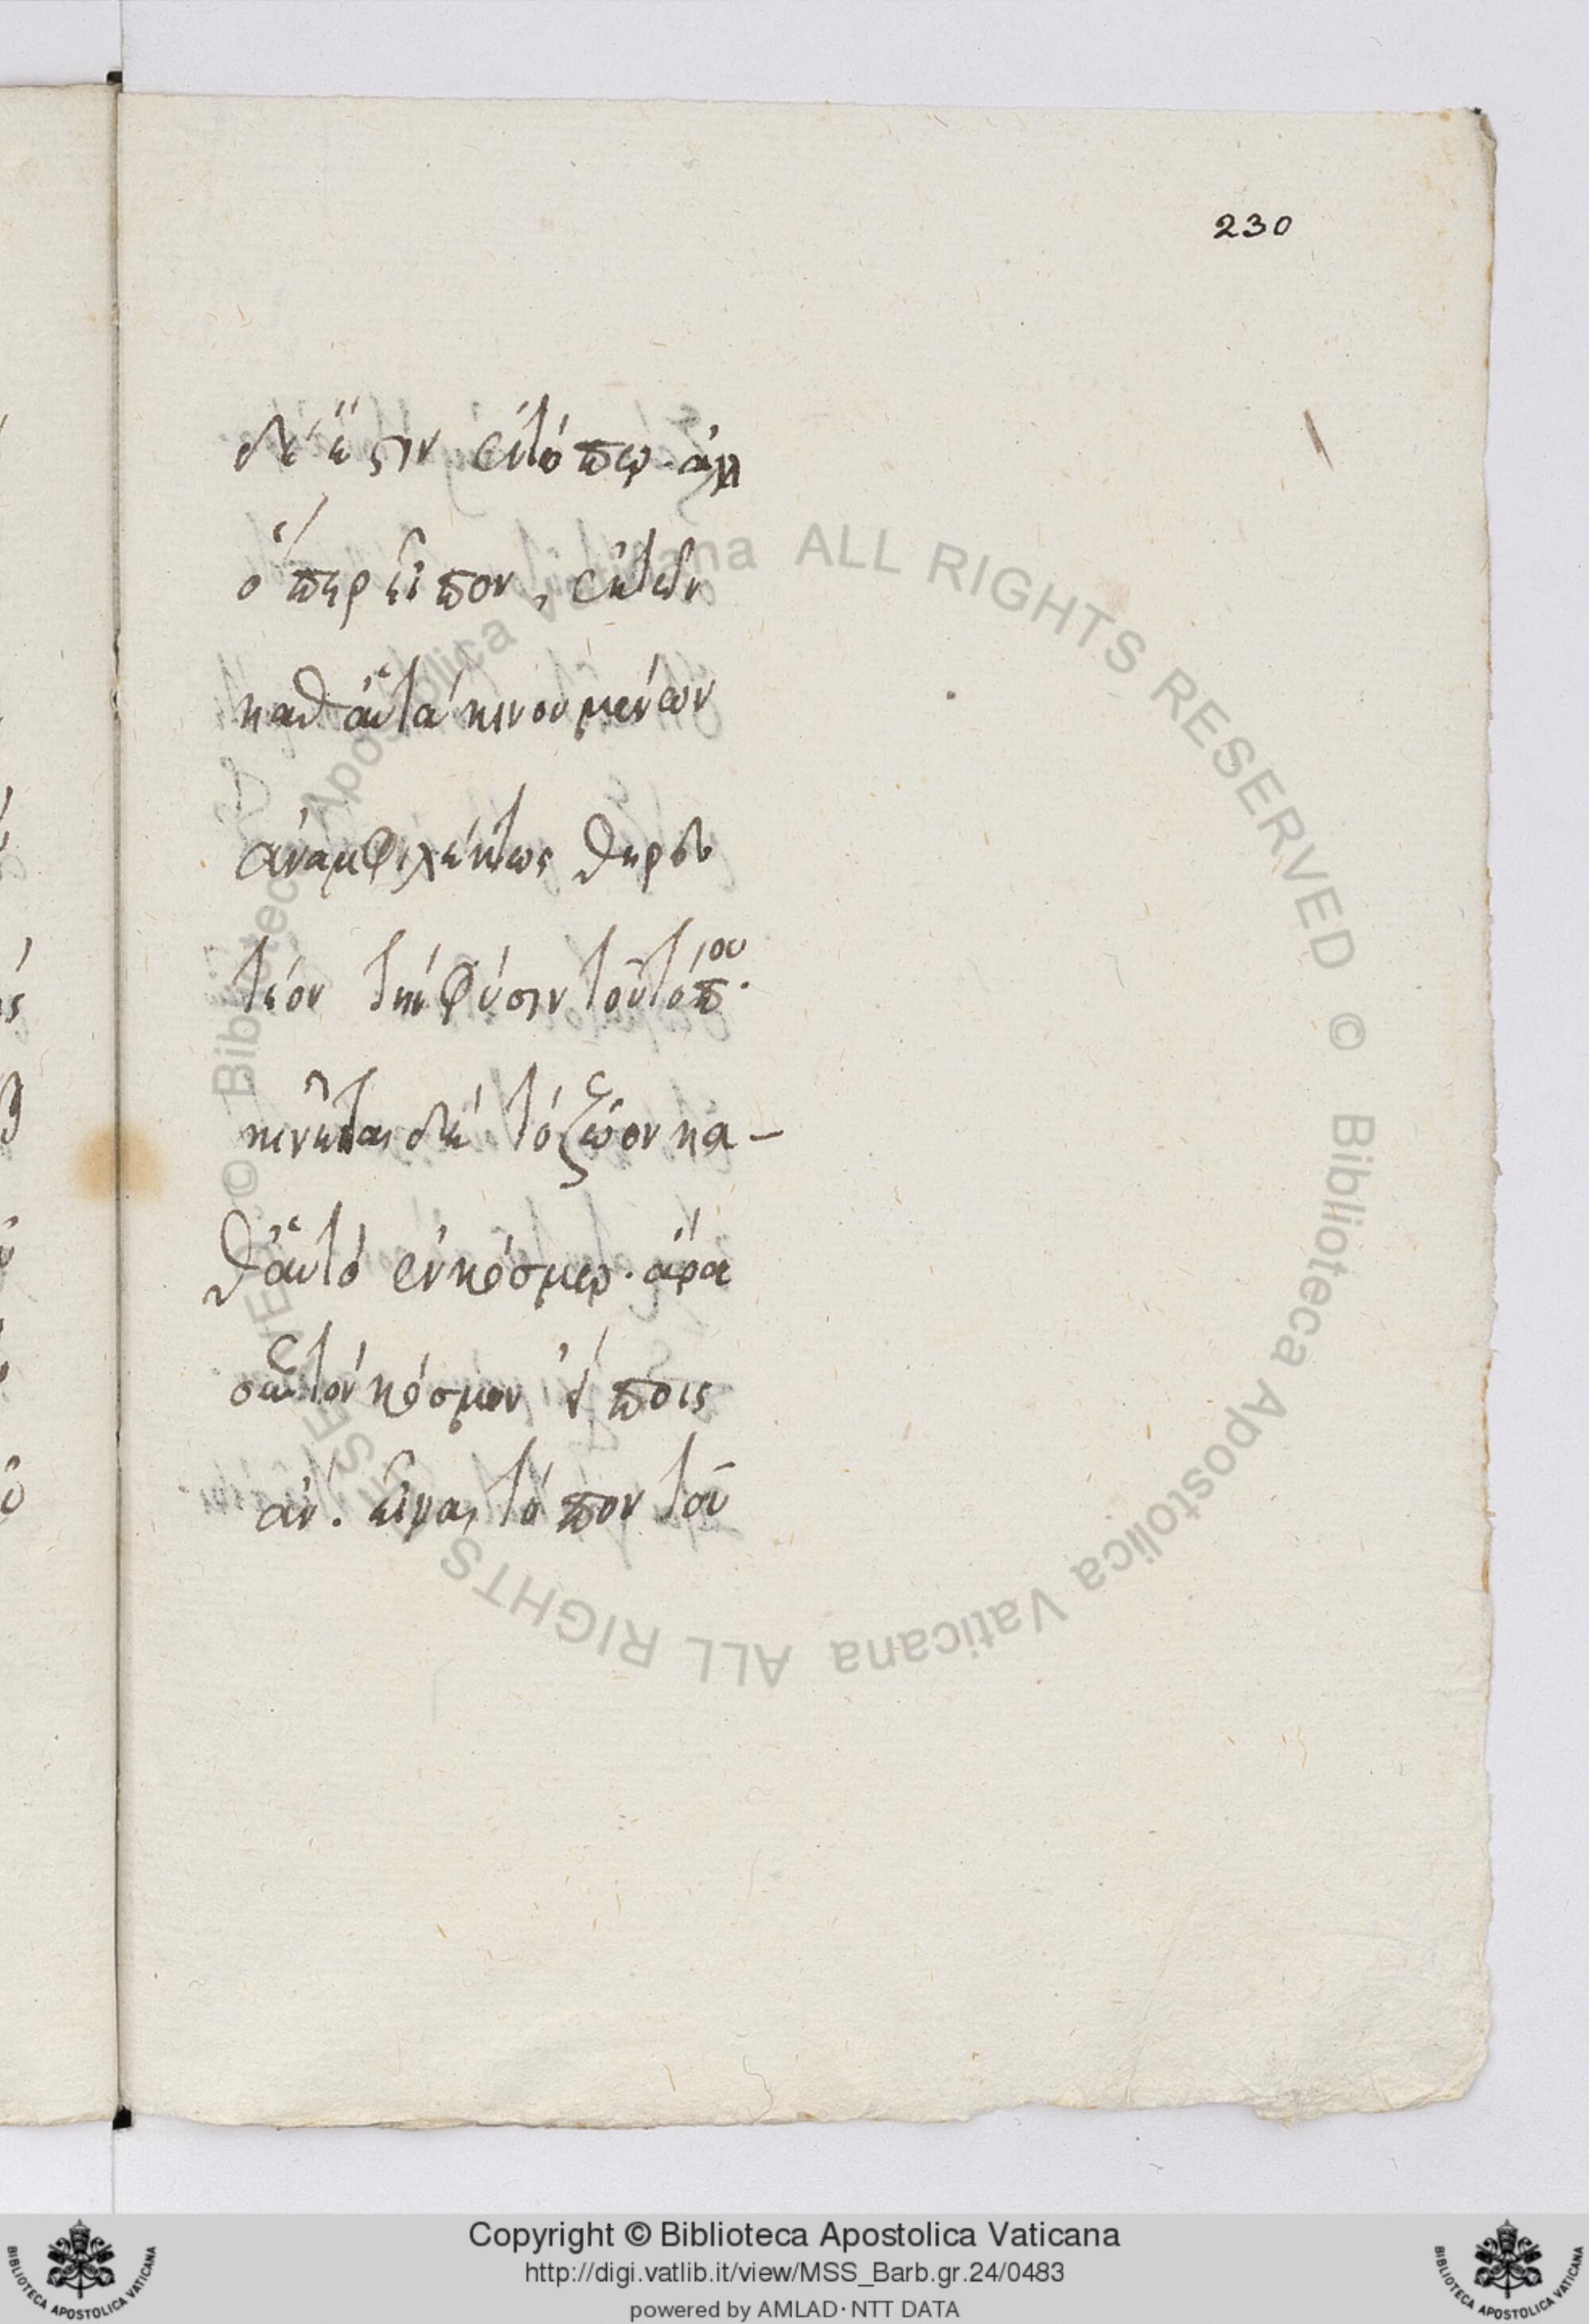 230
δέ ἐστιν ἐν τόπῳ. ἀλλ
ὅπερ εἶπον, ἐκ τῶν
καθ αὑτά κινουμένων
ἀναμφιλέκτως θηρευ
τέον τήν φύσιν τοῦ τόπου.
κινεῖται δέ τό ζῷον κα-
θ αὑτό ἐν κόσμῳ. ἆρα
οὖν τόν κόσμον
ἄν. εἶναι τόπον τοῦ
Copyright © Biblioteca Apostolica Vaticana
http://digi.vatlib.it/view/MSS_Barb.gr.24/0483
powered by AMLAD·NTT DATA
© Biblioteca Apostolica Vaticana ALL RIGHTS RESERVED © Biblioteca Apostolica Vaticana ALL RIGHTS RESERVED
BIBLIOTECA APOSTOLICA VATICANA
BIBLIOTECA APOSTOLICA VATICANA